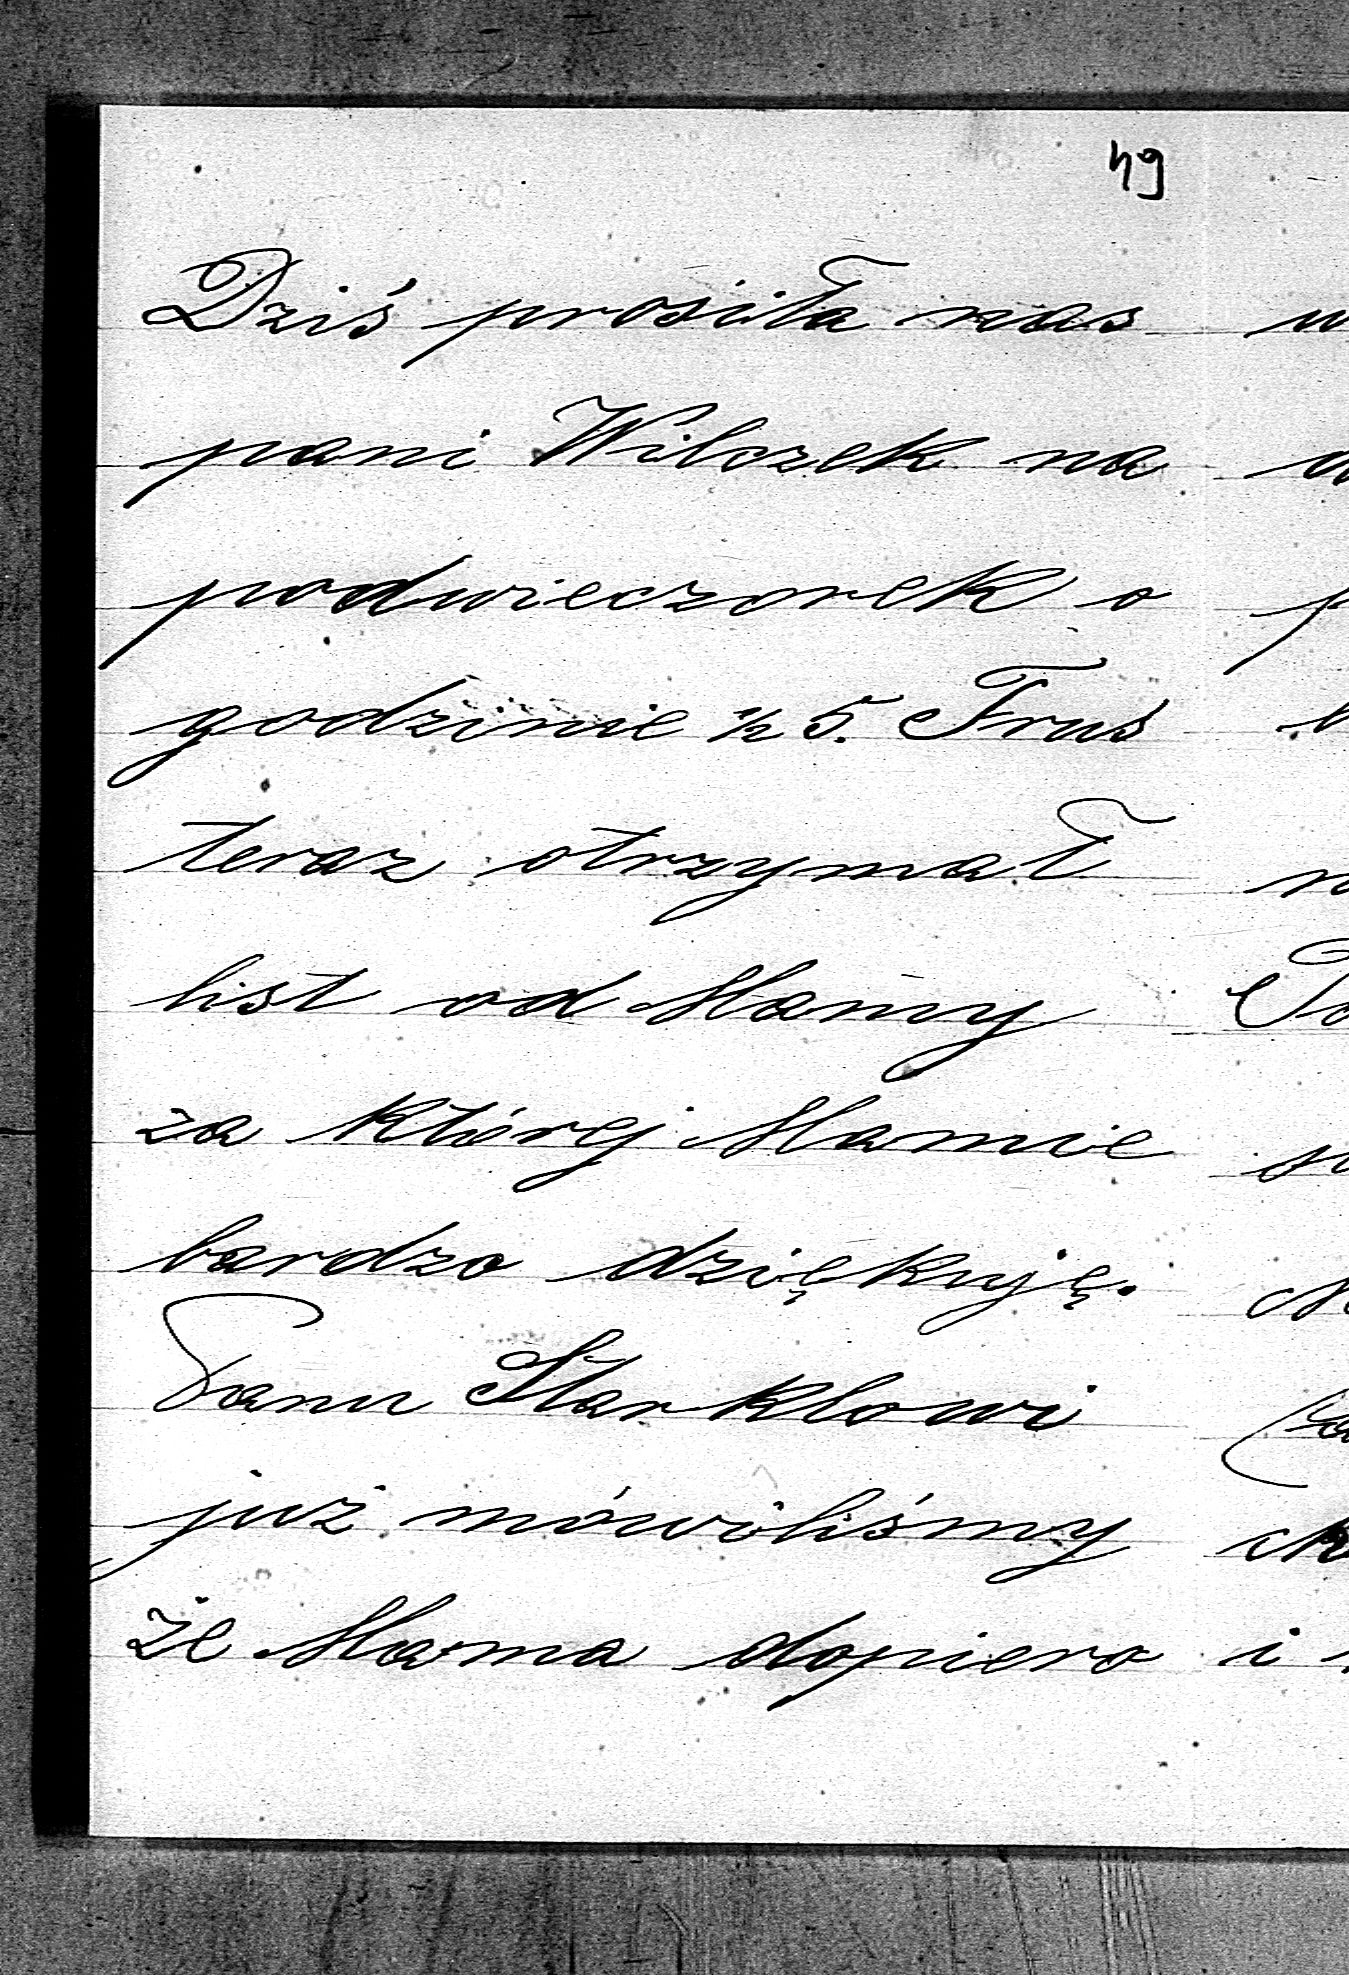 49
Dziś prosiła nas
pani Wilczek na
podwieczorek o
godzinie ½ 5. Frus
teraz otrzymał
list od Mamy
za której Mamie
bardzo dziękuję.
Panu Starklowi
już mówiliśmy
że Mama dopiero i